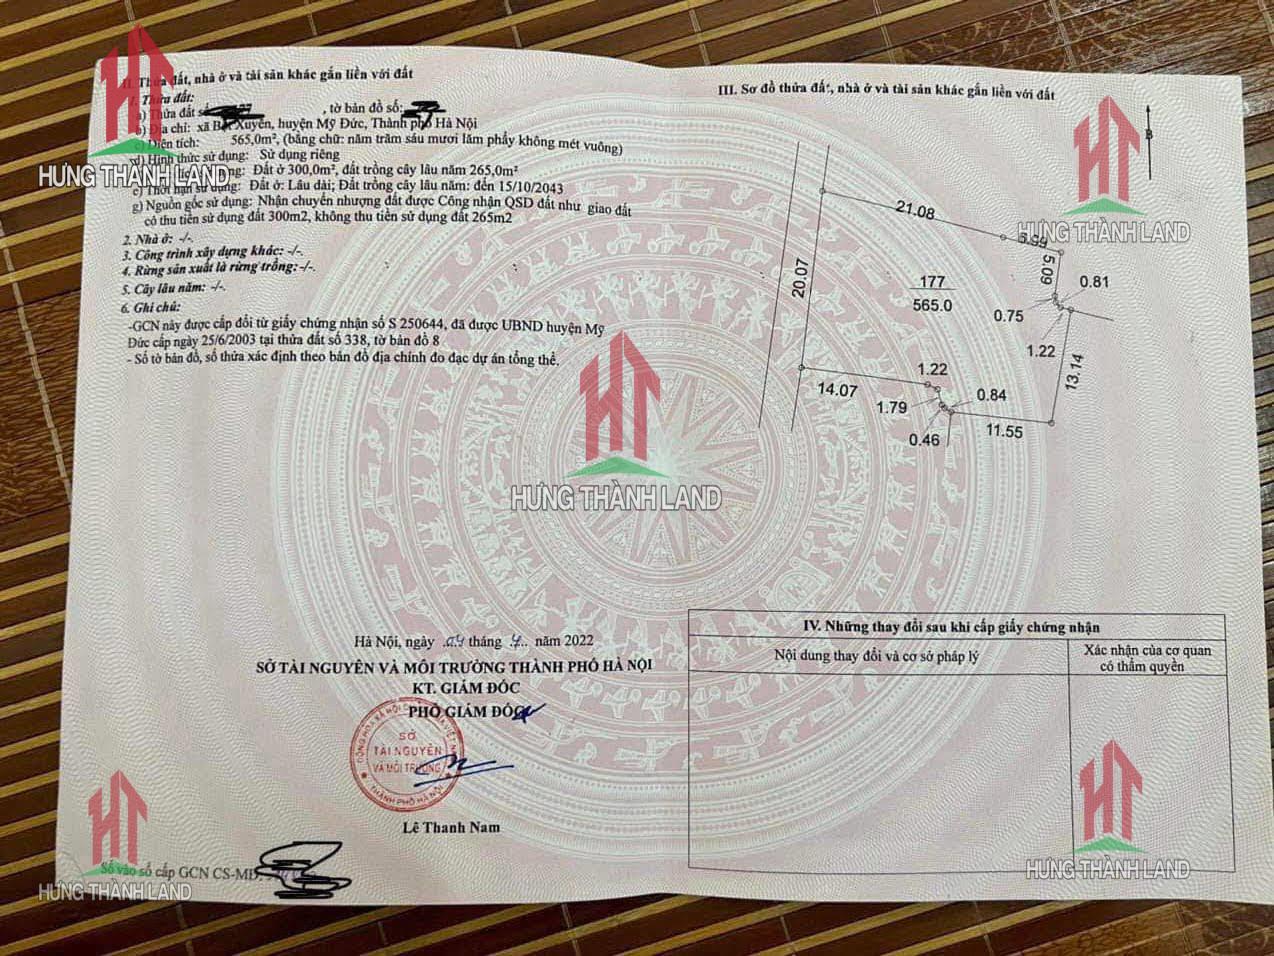 II. Thửa đất, nhà ở và tài sản khác gắn liền với đất
1. Thửa đất:
a) Thửa đất số , tờ bản đồ số:
b) Địa chỉ: xã Xuyên, huyện Mỹ Đức, Thành phố Hà Nội
c) Diện tích: 565,0m², (bằng chữ: năm trăm sáu mươi lăm phẩy không mét vuông)
d) Hình thức sử dụng: Sử dụng riêng
Đất ở 300,0m², đất trồng cây lâu năm 265,0m²
e) Thời hạn sử dụng: Đất ở: Lâu dài; Đất trồng cây lâu năm: đến 15/10/2043
g) Nguồn gốc sử dụng: Nhận chuyển nhượng đất được Công nhận QSD đất như giao đất
có thu tiền sử dụng đất 300m2, không thu tiền sử dụng đất 265m2
2. Nhà ở: -/-.
3. Công trình xây dựng khác: -/-.
4. Rừng sản xuất là rừng trồng: -/-.
5. Cây lâu năm: -/-.
6. Ghi chú:
-GCN này được cấp đổi từ giấy chứng nhận số S 250644, đã được UBND huyện Mỹ
Đức cấp ngày 25/6/2003 tại thửa đất số 338, tờ bản đồ 8
- Số tờ bản đồ, số thửa xác định theo bản đồ địa chính đo đạc dự án tổng thể.
Hà Nội, ngày 04 tháng 7 năm 2022
SỞ TÀI NGUYÊN VÀ MÔI TRƯỜNG THÀNH PHỐ HÀ NỘI
KT. GIÁM ĐỐC
PHÓ GIÁM ĐỐC
SỞ
TÀI NGUYÊN
VÀ MÔI TRƯỜNG
THÀNH PHỐ HÀ NỘI
Lê Thanh Nam
Số vào sổ cấp GCN CS-MĐ:
III. Sơ đồ thửa đất, nhà ở và tài sản khác gắn liền với đất
B
21.08
5.09
20.07
177
565.0
0.81
0.75
1.22
13.14
14.07
1.22
1.79
0.84
0.46
11.55
IV. Những thay đổi sau khi cấp giấy chứng nhận
Nội dung thay đổi và cơ sở pháp lý
Xác nhận của cơ quan
có thẩm quyền
HƯNG THÀNH LAND
HƯNG THÀNH LAND
HƯNG THÀNH LAND
HƯNG THÀNH LAND
HƯNG THÀNH LAND